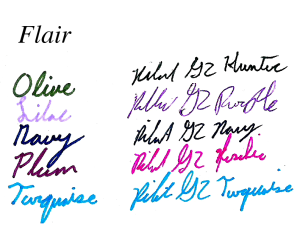 Flair
Olive Pilot G2 Hunter
Lilac Pilot G2 Purple
Navy Pilot G2 Navy
Plum Pilot G2
Turquoise Pilot G2 Turquoise